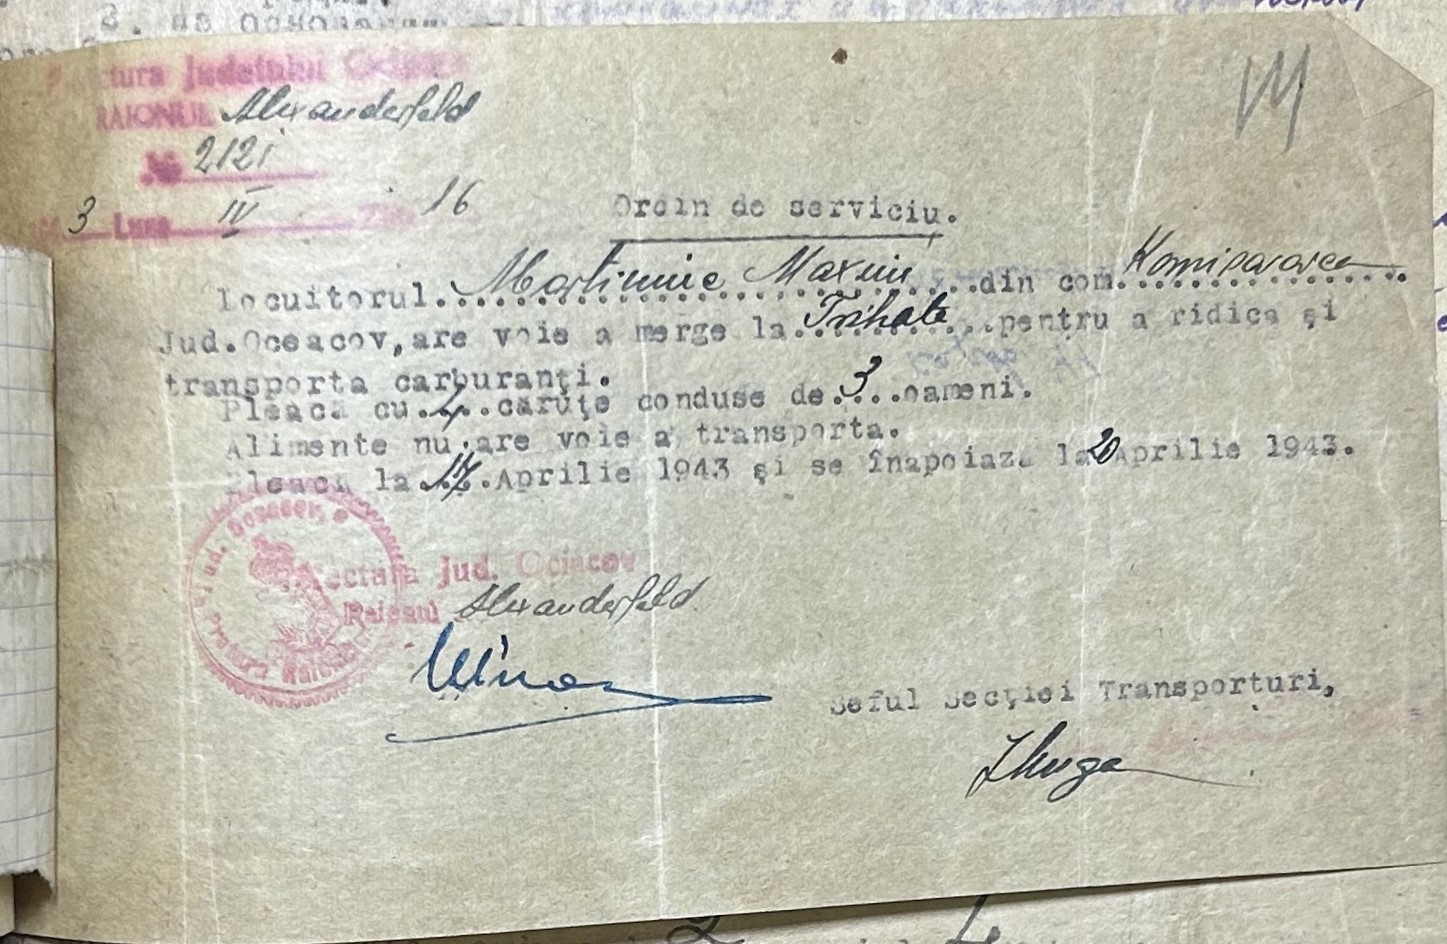 3. на основании
Prefectura Judetului Oceacov
RAIONUL Alexanderfeld
№ 2121
3 Luna IV 16
Ordin de serviciu.
Locuitorul..Martiniuc Maxim.....din com.Komisarovca....
Jud.Oceacov,are voie a merge la..Trihate...pentru a ridica și
transporta carburanți.
Pleacă cu.4..căruțe conduse de.3...oameni.
Alimente nu are voie a transporta.
Pleacă la.17.Aprilie 1943 și se înapoiază la 20 Aprilie 1943.
Jud. Oceacov
Pretura Raion
Prefectura Jud. Ociacov
Raionul Alexanderfeld
Seful Secției Transporturi,